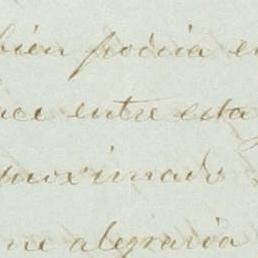 bien podria en
ace entre esta
proximado
me alegraria